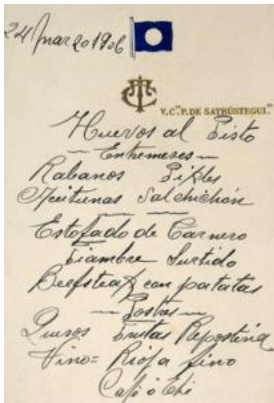 24 marzo 1906
V.C. "P. DE SATRÚSTEGUI."
Huevos al Pisto
Entremeses
Rabanos Pikles
Aceitunas Salchichón
Estofado de Carnero
Fiambre Surtido
Beefsteak con patatas
Postres
Quesos Frutas Reposteria
Vino = Rioja fino
Café ó Thé